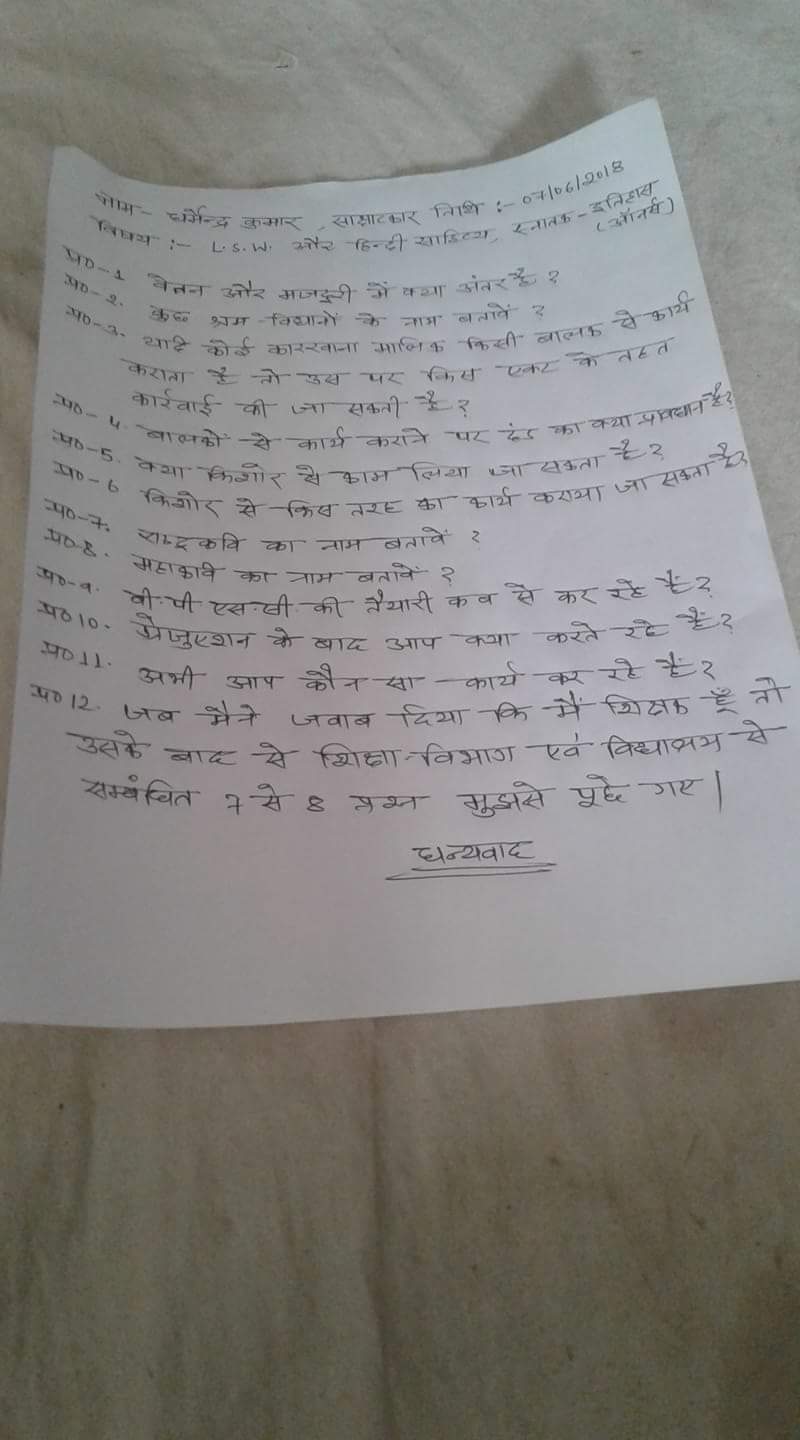 नाम- धर्मेन्द्र कुमार, साक्षात्कार तिथि :- 07/06/2018
विषय :- L.S.W. और हिन्दी साहित्य, स्नातक - इतिहास
(ऑनर्स)
प्र०-1 वेतन और मजदूरी में क्या अंतर है ?
प्र०-2. कुछ श्रम विधानों के नाम बतावें ?
प्र०-3. यदि कोई कारखाना मालिक किसी बालक से कार्य
कराता है तो उस पर किस एक्ट के तहत
कार्रवाई की जा सकती है ?
प्र०-4. बालकों से कार्य कराने पर दंड का क्या प्रावधान है?
प्र०-5. क्या किशोर से काम लिया जा सकता है ?
प्र०-6 किशोर से किस तरह का कार्य कराया जा सकता है?
प्र०-7. राष्ट्रकवि का नाम बतावें ?
प्र०-8. महाकवि का नाम बतावें ?
प्र०-9. बी.पी.एस.सी. की तैयारी कब से कर रहे हैं?
प्र०10. ग्रेजुएशन के बाद आप क्या करते रहे हैं?
प्र०11. अभी आप कौन सा कार्य कर रहे हैं?
प्र०12. जब मैने जवाब दिया कि मैं शिक्षक हूँ तो
उसके बाद से शिक्षा-विभाग एवं विद्यालय से
सम्बंधित 7 से 8 प्रश्न मुझसे पूछे गए |
धन्यवाद